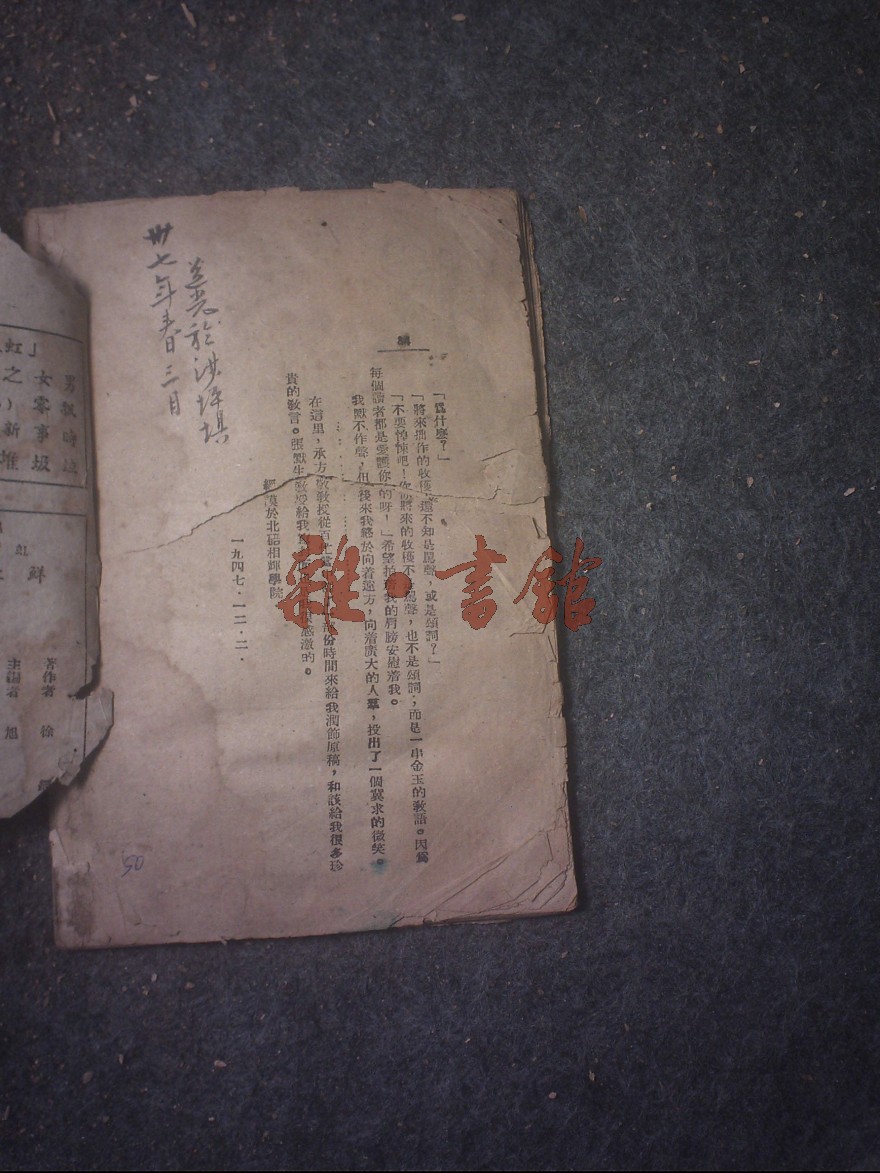 「爲什麼？」
「將來拙作的收穫，還不知是罵聲，或是頌詞？」
「不要惶悚吧！你將來的收穫不是罵聲，也不是頌詞；而是一串金玉的敎語。因爲
每個讀者都是愛護你的呀，」希望拍着我的肩膀安慰着我。
我默不作聲，但後來我終於向着遠方，向着廣大的人羣，投出了一個冀求的微笑。
在這里，承方敬敎授從百忙
部份時間來給我潤飾原稿，和該給我很多珍
貴的敎言。張默生敎授給我
感激的。
於北碚相輝學院
一九四七・一二・二・
卅七年春三月
於沙坪壩
50
虹」
男女之
飄零
時事新
圾堆
虹
鮮
著作者 徐
主編者 旭
雜・書館